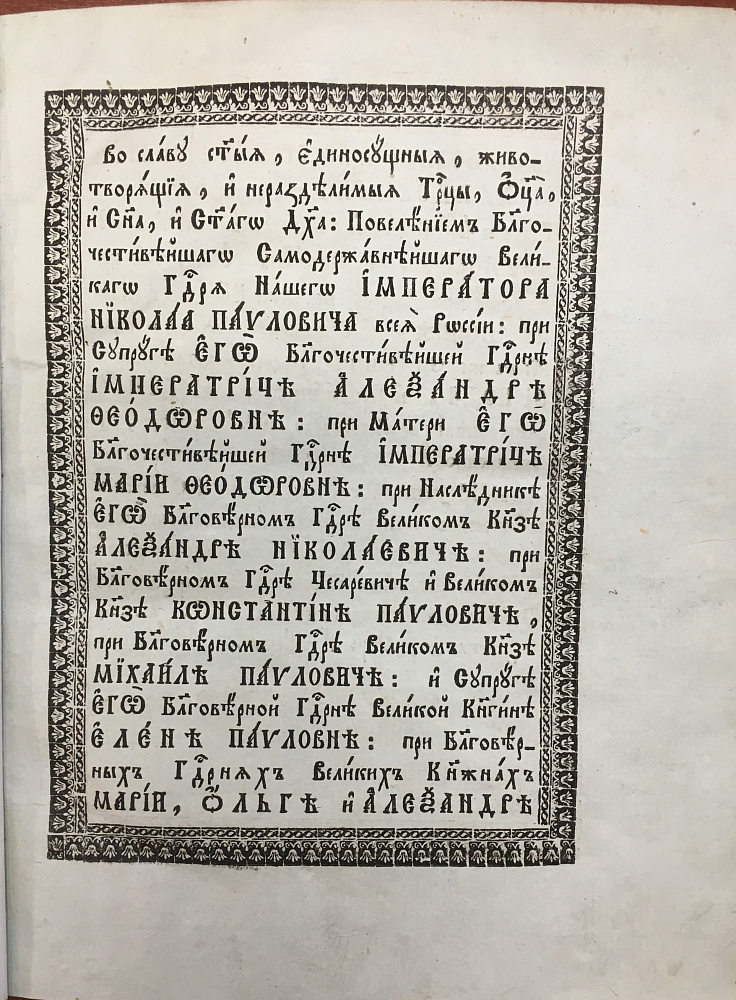 Во сла́ву ст҃ы́ѧ, є҆диносꙋ́щныѧ, живо-
творѧ́щїѧ, и҆ нераздѣли́мыѧ Трⷪ҇цы, Ѻ҆ц҃а̀,
и҆ Сн҃а, и҆ Ст҃а́гѡ Дх҃а: Повелѣ́нїемъ Бл҃го-
чести́вѣйшагѡ Самодержа́внѣйшагѡ Вели́-
кагѡ Гдⷭ҇рѧ На́шегѡ І҆МПЕРА́ТОРА
НЇКОЛА́А ПА́ѴЛОВИЧА всеѧ̀ Рѡссі́и: при
Сꙋпрꙋ́гѣ Є҆ГѠ̀ Бл҃гочести́вѣйшей Гдⷭ҇рнѣ
І҆МПЕРАТРІ́ЧѢ А҆ЛЕѮА́НДРѢ
ѲЕО́ДѠРОВНѢ: при Ма́тери Є҆ГѠ̀
Бл҃гочести́вѣйшей Гдⷭ҇рнѣ І҆МПЕРАТРІ́ЧѢ
МАРІ́И ѲЕО́ДѠРОВНѢ: при Наслѣ́дникѣ
Є҆ГѠ̀ Бл҃говѣ́рномъ Гдⷭ҇рѣ Вели́комъ Кн҃зѣ
А҆ЛЕѮА́НДРѢ НЇКОЛА́ЕВИЧѢ: при
Бл҃говѣ́рномъ Гдⷭ҇рѣ Чесаре́вичѣ и҆ Вели́комъ
Кн҃зѣ КѠНСТАНТІ́НѢ ПА́ѴЛОВИЧѢ,
при Бл҃говѣ́рномъ Гдⷭ҇рѣ Вели́комъ Кн҃зѣ
МЇХАИ́ЛѢ ПА́ѴЛОВИЧѢ: и҆ Сꙋпрꙋ́гѣ
Є҆ГѠ̀ Бл҃говѣ́рной Гдⷭ҇рнѣ Вели́кой Кн҃ги́нѣ
Є҆ЛЕ́НѢ ПА́ѴЛОВНѢ: при Бл҃говѣ́р-
ныхъ Гдⷭ҇рнѧхъ Вели́кихъ Кн҃жна́хъ
МАРІ́И, Ѻ҆́ЛЬГѢ и҆ А҆ЛЕѮА́НДРѢ